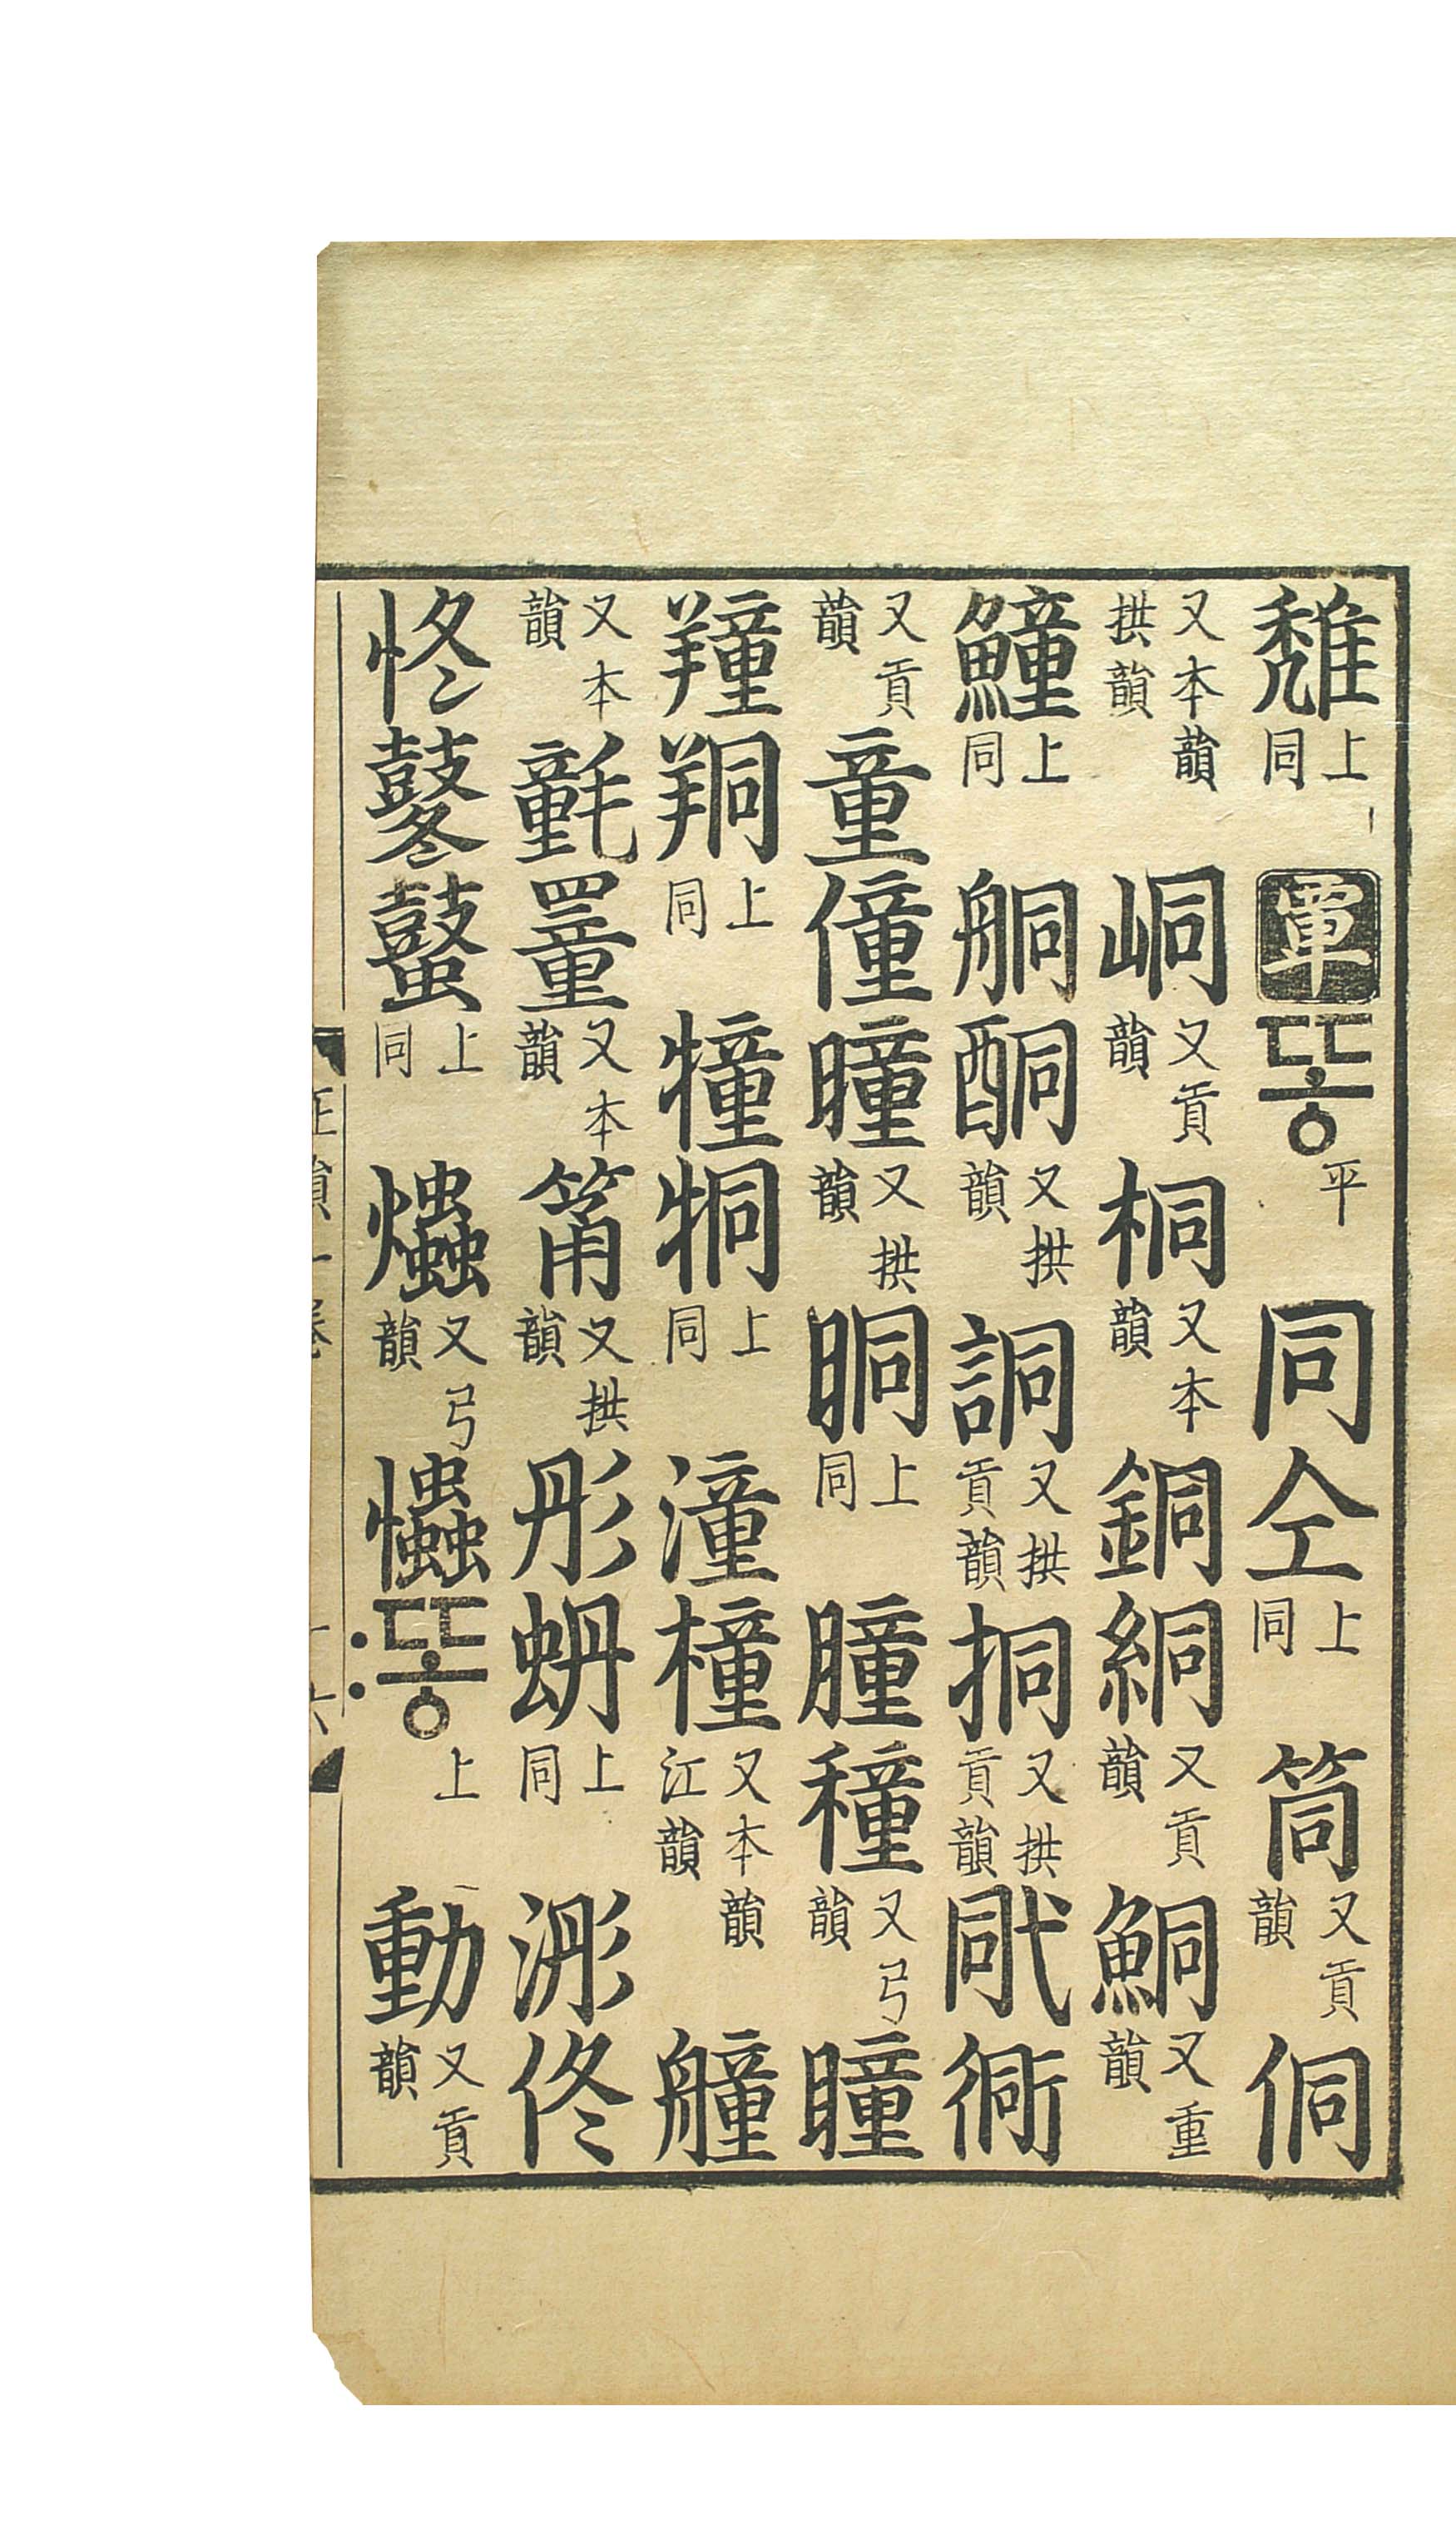 上同 覃 똥 平 同 仝 上同 筒 又貢韻 侗
又本韻拱韻 峒 又貢韻 桐 又本韻 銅 絧 又貢韻 鮦 又重韻
上同 酮 又拱韻 詷 又拱貢韻 挏 又拱貢韻 戙 衕
又貢韻 童 僮 曈 又拱韻 晍 上同 膧 穜 又弓韻 瞳
上同 犝 上同 潼 橦 又本韻江韻 艟
又本韻 氃 罿 又本韻 筩 又拱韻 彤 上同 浵 佟
鼕 上同 爞 又弓韻 〯똥 上 動 又貢韻